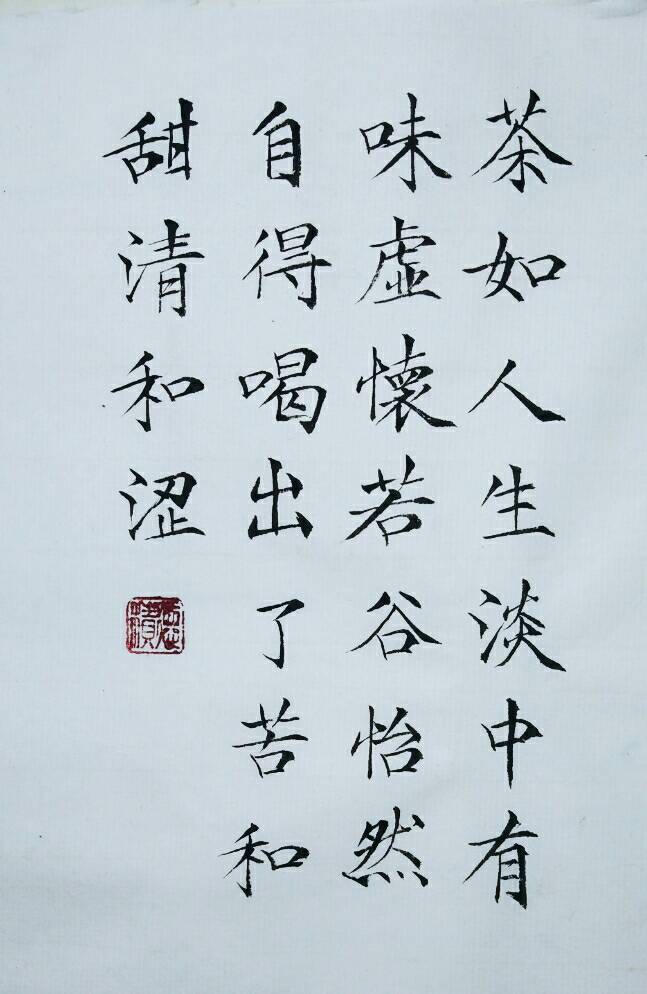 茶如人生淡中有
味虚懷若谷怡然
自得喝出了苦和
甜清和涩